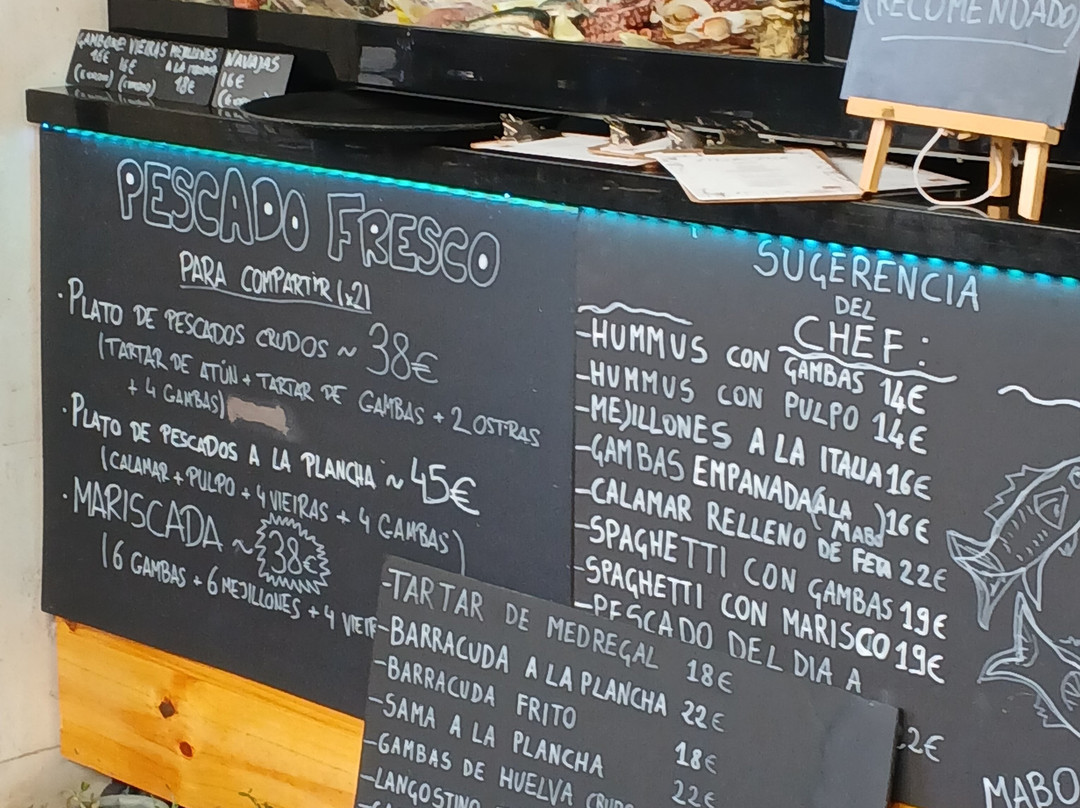 (RECOMENDADO)
GAMBONE VIEIRAS MEJILLONES
18€ 16€ A LA
18€
NAVAJAS
16€
PESCADO FRESCO
PARA COMPARTIR (x2)
·PLATO DE PESCADOS CRUDOS ~ 38€
(TARTAR DE ATÚN + TARTAR DE GAMBAS + 2 OSTRAS
+ 4 GAMBAS)
·PLATO DE PESCADOS A LA PLANCHA ~ 45€
(CALAMAR + PULPO + 4 VIEIRAS + 4 GAMBAS)
·MARISCADA ~ 38€
(6 GAMBAS + 6 MEJILLONES + 4 VIEIR
SUGERENCIA
DEL
CHEF:
-HUMMUS CON GAMBAS 14€
-HUMMUS CON PULPO 14€
-MEJILLONES A LA ITALIA 16€
-GAMBAS EMPANADA(ALA MABO) 16€
-CALAMAR RELLENO DE FETA 22€
-SPAGHETTI CON GAMBAS 19€
-SPAGHETTI CON MARISCO 19€
-PESCADO DEL DIA A
2€
MABO
-TARTAR DE MEDREGAL 18€
-BARRACUDA A LA PLANCHA 22€
-BARRACUDA FRITO
-SAMA A LA PLANCHA 18€
-GAMBAS DE HUELVA 22€
-LANGOSTINO